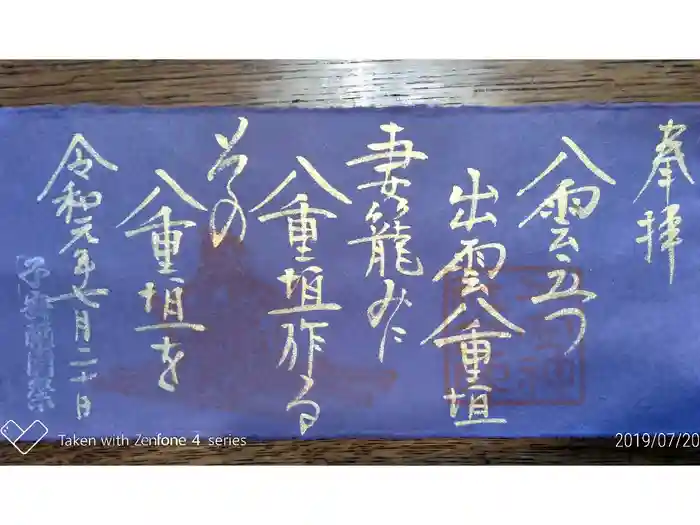 奉拝
八雲立つ
出雲八重垣
妻籠みに
八重垣作る
その
八重垣を
令和元年七月二十日
Taken with Zenfone 4 series
2019/07/20